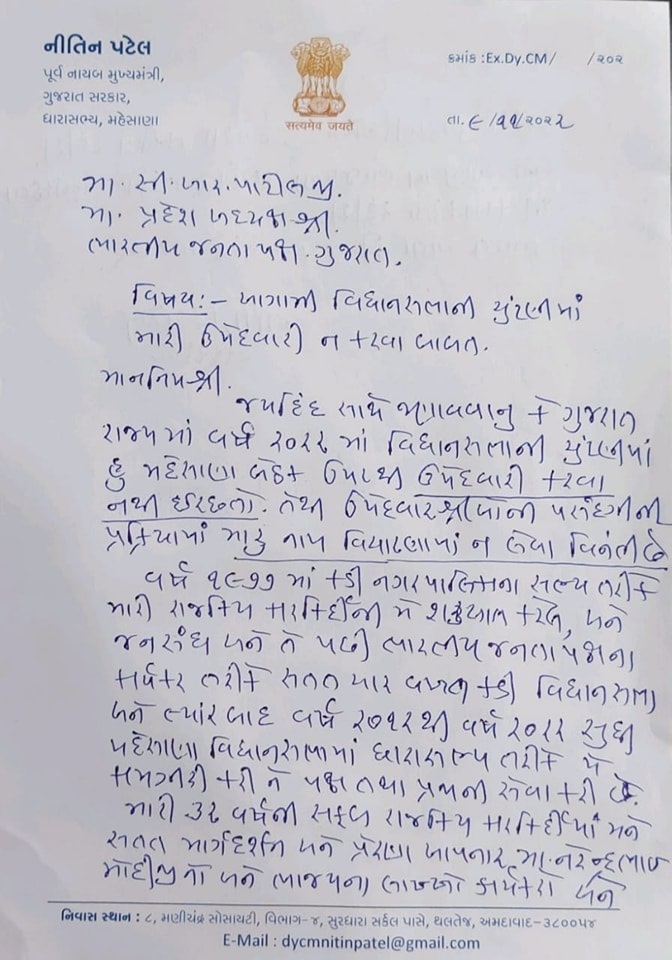 નીતિન પટેલ
પૂર્વ નાયબ મુખ્યમંત્રી,
ગુજરાત સરકાર,
ધારાસભ્ય, મહેસાણા
सत्यमेव जयते
ક્રમાંક :Ex.Dy.CM/ /૨૦૨
તા. ૯/૧૧/૨૦૨૨
મા. સી. આર. પાટીલજી.
મા. પ્રદેશ અધ્યક્ષશ્રી.
ભારતીય જનતા પક્ષ. ગુજરાત.
વિષય:- આગામી વિધાનસભાની ચુંટણીમાં
મારી ઉમેદવારી ન કરવા બાબત.
માનનિયશ્રી.
જયહિંદ સાથે જણાવવાનુ કે ગુજરાત
રાજ્યમાં વર્ષ ૨૦૨૨ માં વિધાનસભાની ચુંટણીમાં
હું મહેસાણા બેઠક ઉપરથી ઉમેદવારી કરવા
નથી ઈચ્છતો. તેથી ઉમેદવારશ્રીઓની પસંદગીની
પ્રક્રિયામાં મારૂ નામ વિચારણામાં ન લેવા વિનંતી છે
વર્ષ ૧૯૭૭ માં કડી નગરપાલિકાના સભ્ય તરીકે
મારી રાજકિય કારકિર્દીની મે શરૂઆત કરેલ, અને
જનસંઘ અને તે પછી ભારતીય જનતા પક્ષના
કાર્યકર તરીકે સતત ચાર વખત કડી વિધાનસભા
અને ત્યાર બાદ વર્ષ ૨૦૧૨ થી વર્ષ ૨૦૨૨ સુધી
મહેસાણા વિધાનસભામાં ધારાસભ્ય તરીકે મે
કામગીરી કરી ને પક્ષ તથા પ્રજાની સેવા કરી છે.
મારી ૩૨ વર્ષની સફળ રાજકિય કારકિર્દીમાં મને
સતત માર્ગદર્શન અને પ્રેરણા આપનાર મા. નરેન્દ્રભાઈ
મોદીજી નો અને ભાજપના લાખ્ખો કાર્યકરો અને
નિવાસ સ્થાન : ૮, મણીચંદ્ર સોસાયટી, વિભાગ-૪, સુરધારા સર્કલ પાસે, થલતેજ, અમદાવાદ-૩૮૦૦૫૪
E-Mail : dycmnitinpatel@gmail.com